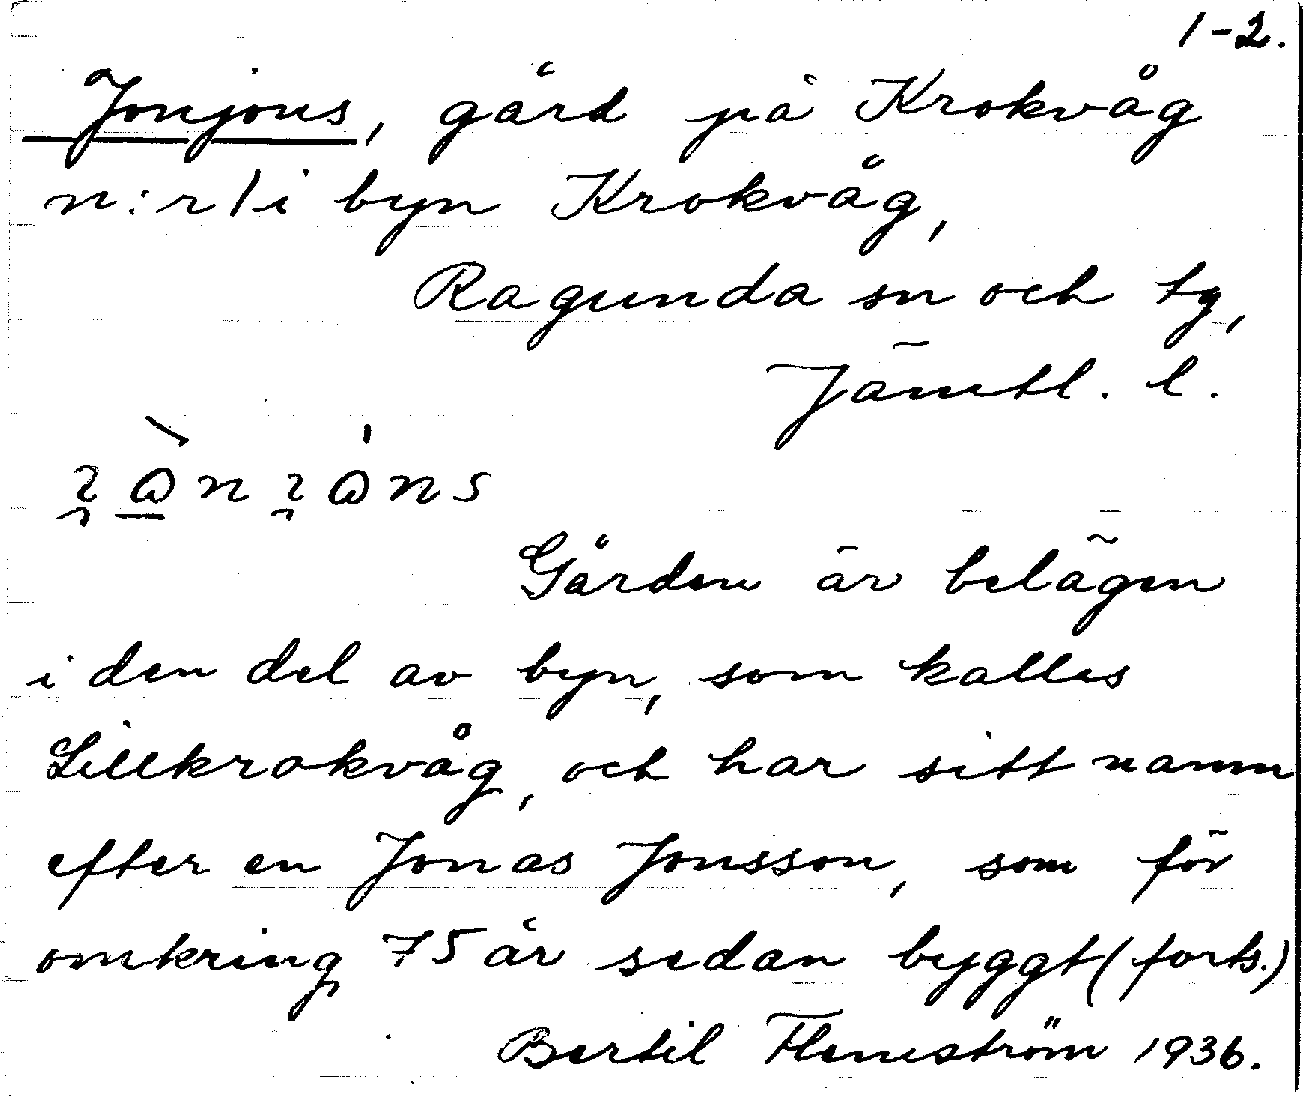 1-2.
Jonjons, gård på Krokvåg
n:r 1 i byn Krokvåg,
Ragunda sn och tg,
Jämtl. l.
Gården är belägen
i den del av byn, som kallas
Lillkrokvåg, och har sitt namn
efter en Jonas Jonsson, som för
omkring 75 år sedan byggt (forts.)
Bertil Flemström 1936.